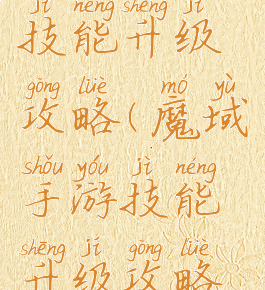 jì néng shēng jí
技能升级
gōng lüè mó yù
攻略(魔域
shǒu yóu jì néng
手游技能
shēng jí gōng lüè
升级攻略